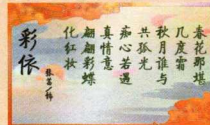 春花那堪
几度霜
秋月谁与
共孤光
痴心若遇
真情意
翩翩彩蝶
化红妆
彩依